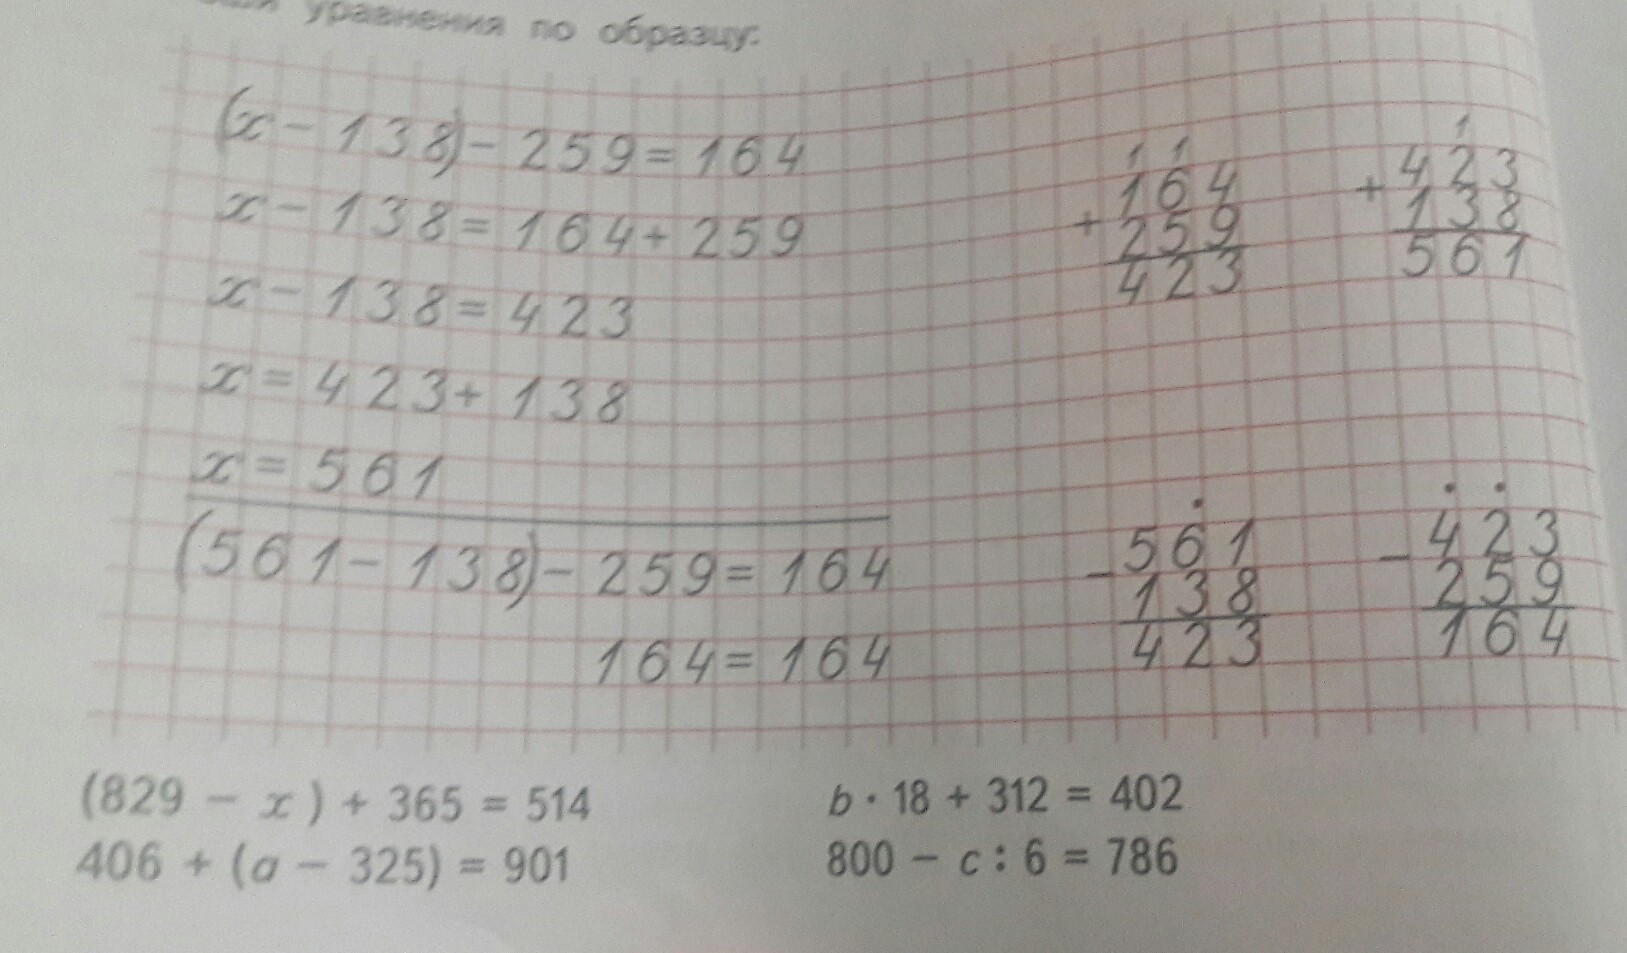 уравнения по образцу:
(x - 138) - 259 = 164
x - 138 = 164 + 259
x - 138 = 423
x = 423 + 138
x = 561
(561 - 138) - 259 = 164
164 = 164
1 1
164
+ 259
423
1
423
+ 138
561
. 
561
- 138
423
. .
423
- 259
164
(829 - x) + 365 = 514
406 + (a - 325) = 901
b · 18 + 312 = 402
800 - c : 6 = 786